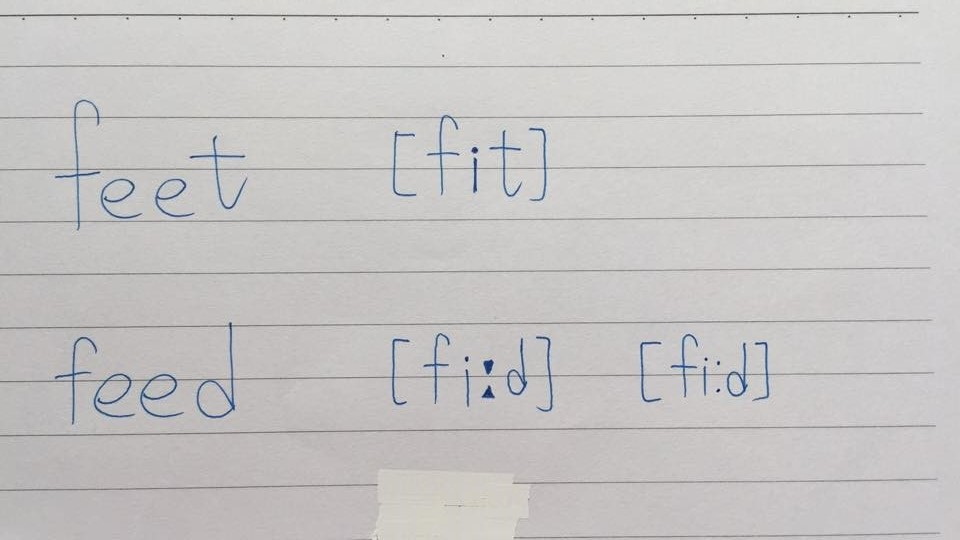 feet [fit]
feed [fiːd] [fi:d]